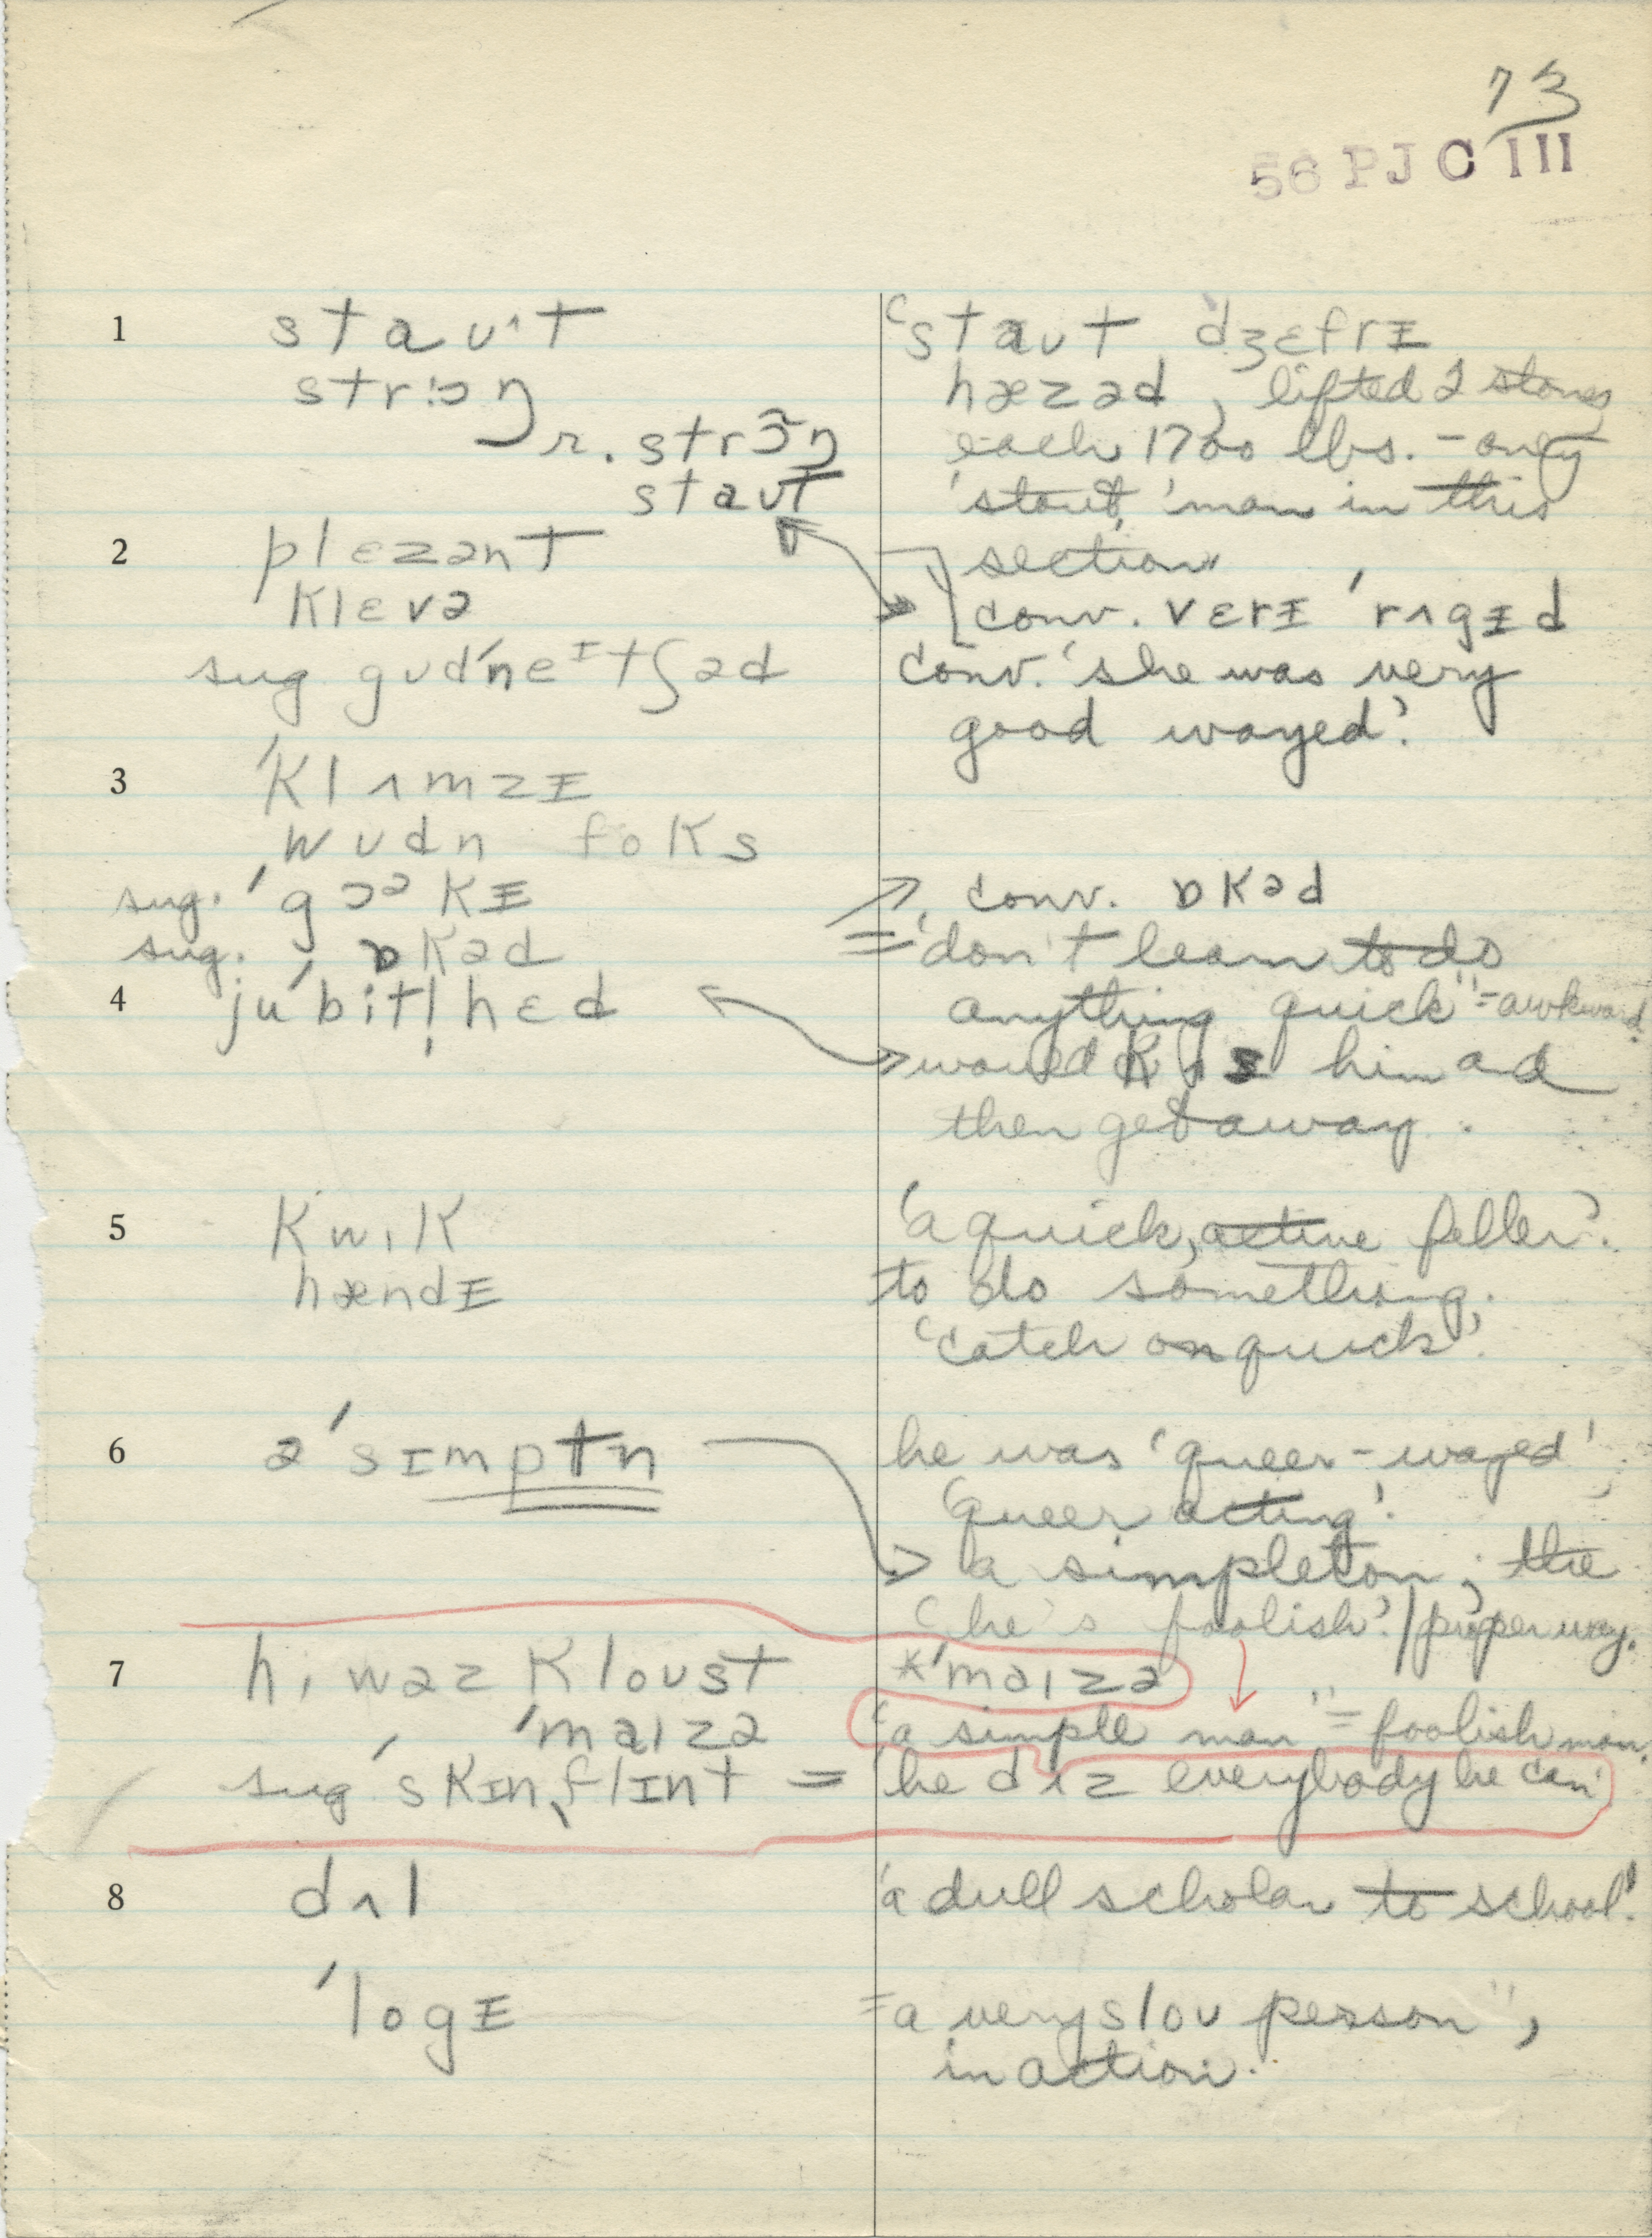 73
56 PJC III
1 staʊ^t
strɔŋ
r. strɔ̃ŋ
staʊt
'staʊt dʒɛfrɪ
hæzəd, lifted 2 stones
each 1700 lbs. - only
'stout,' man in this
section
conv. vɛrɪ 'rʌgɪd
2 plɛzənt
klɛvə
sug gʊd'neɪtʃəd
conv. 'she was very
good wayed'.
3 'klʌmzɪ
wʊdn foks
sug. 'gɔəkɪ
sug. ɒkəd
conv. ɒkəd
= 'don't learn to do
anything quick" = awkward
4 ju'bit!hɛd
would kɪs him and
then get away.
5 kwɪk
hændɪ
'a quick, active feller'.
to do something.
'catch on quick'.
6 ə'sɪmptn
he was 'queer-wayed';
'queer acting'.
a simpleton; the
proper way.
'he's foolish'.
7 hi wəz kloʊst
'maɪzə
sug 'skɪnˌflɪnt =
*'maɪzə
'a simple man" = foolish man.
'he dɪz everybody he can'
8 dʌl
'a dull scholar to school'.
'logɪ
= a very sloʊ person",
in action.